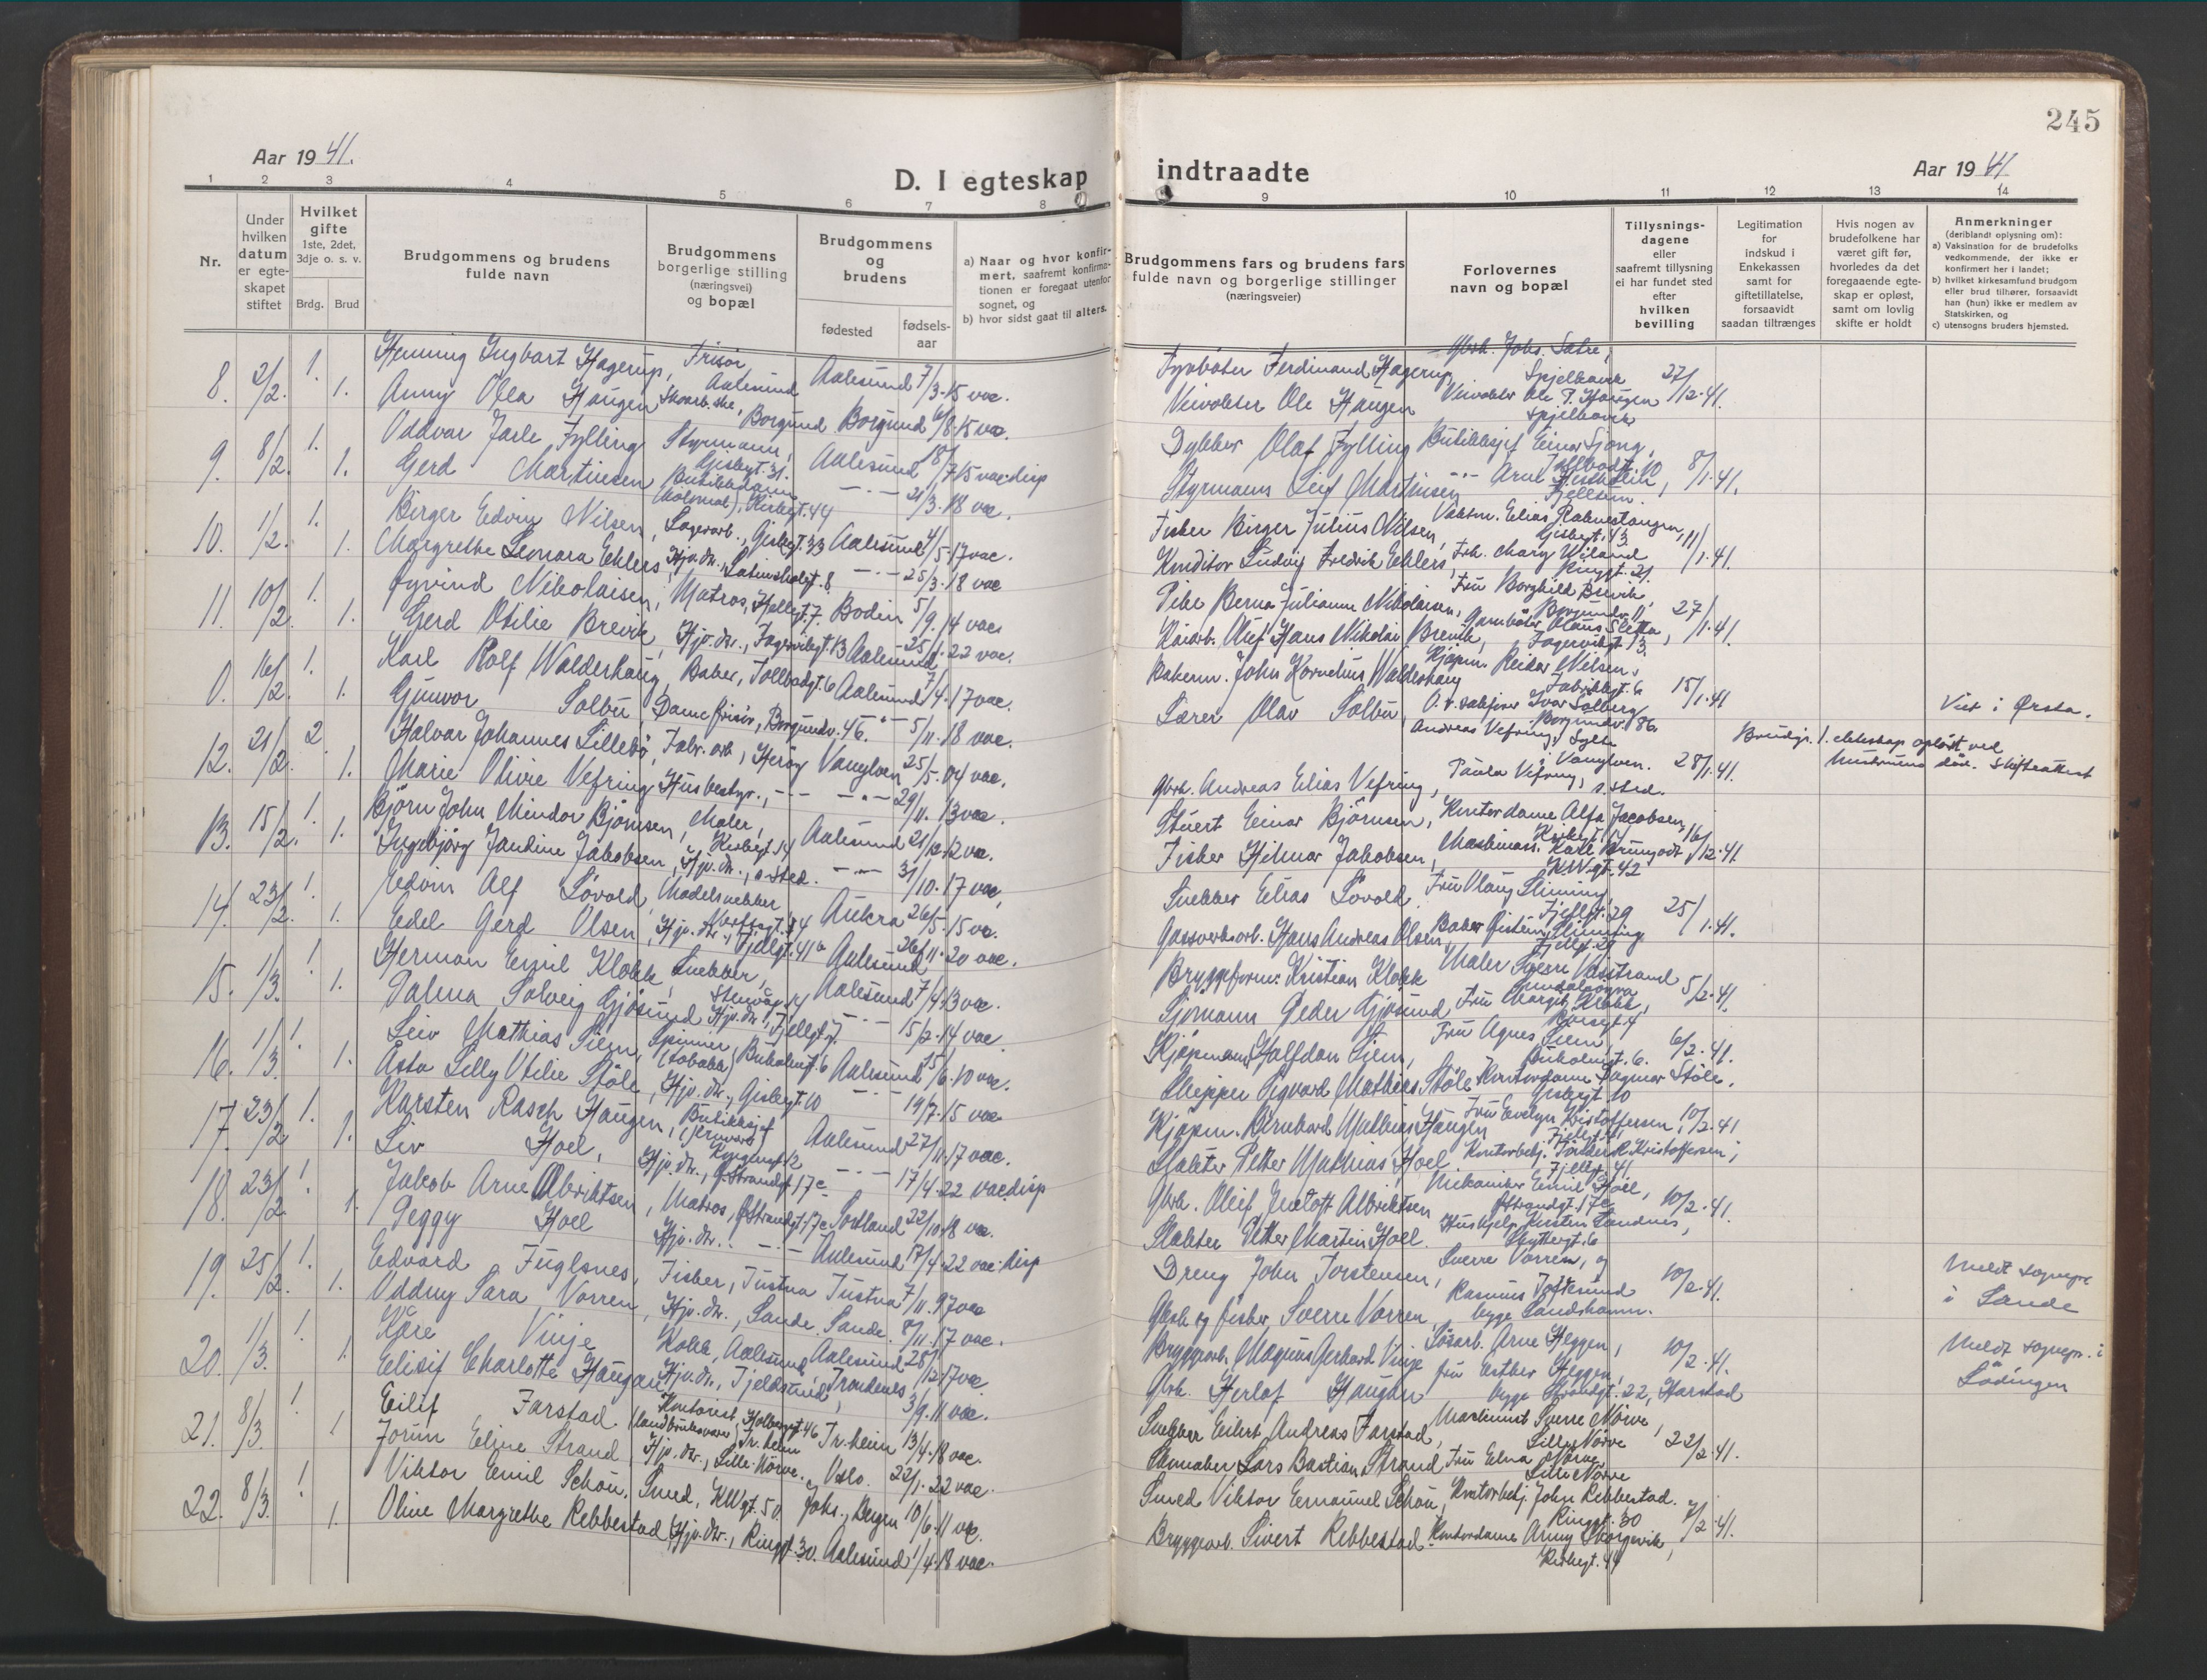 245
Aar 1941.
D. I egteskap indtraadte
Aar 1941
1 2 3 4 5 6 7 8 9 10 11 12 13 14
Nr.
Under hvilken datum er egteskapet stiftet
Hvilket gifte 1ste, 2det, 3dje o. s. v.
Brdg. Brud
Brudgommens og brudens fulde navn
Brudgommens borgerlige stilling (næringsvei) og bopæl
Brudgommens og brudens
fødested fødsels-aar
a) Naar og hvor konfirmert, saafremt konfirmationen er foregaat utenfor sognet, og
b) hvor sidst gaat til alters.
Brudgommens fars og brudens fars fulde navn og borgerlige stillinger (næringsveier)
Forlovernes navn og bopæl
Tillysningsdagene eller saafremt tillysning ei har fundet sted efter hvilken bevilling
Legitimation for indskud i Enkekassen samt for giftetillatelse, forsaavidt saadan tiltrænges
Hvis nogen av brudefolkene har været gift før, hvorledes da det foregaaende egteskap er opløst, samt om lovlig skifte er holdt
Anmerkninger (deriblandt oplysning om):
a) Vaksination for de brudefolks vedkommende, der ikke er konfirmert her i landet;
b) hvilket kirkesamfund brudgom eller brud tilhører, forsaavidt han (hun) ikke er medlem av Statskirken, og
c) utensogns bruders hjemsted.
8. 2/2. 1. Henning Ingbart Hagerup, Frisør Aalesund Aalesund 7/3-15 vac. Ferdinand Hagerup, Gbrk. Johs. Sætre, Spjelkavik 27/12-41.
1. Anny Olea Haugen Borgund Borgund 6/8-15 vac. Veivokter Ole Haugen Veivokter Ole P. Haugen Spjelkavik
9. 8/2. 1. Oddvar Jarle Fylling Styrmann, Gisbegt. 31. Aalesund 18/7-15 vac. disp Dykker Olaf Fylling Butikksjef Einar Sjong, 8/1-41.
1. Gerd Martinsen Butikkdame Kirkegt. 44 -"- 21/3-18 vac. Styrmann Leif Martinsen Arne
10. 1/2. 1. Birger Edvin Nilsen, Lagerarb., Gisbegt. 33 Aalesund 4/5-17 vac. Fisker Birger Julius Nilsen, Elias Rabnestangen, 11/1-41.
1. Margrethe Leonara Ehlers, Hjv. dr., 8. -"- 25/3-18 vac Konditor Ludvig Fredrik Ehlers, Frk. Mary Wiland Ringgt. 21.
11. 10/2. 1. Øyvind Nikolaisen, Matros, Hellegt. 7. Bodin 5/9-14 vac. Pike Berna Julianne Nikolaisen, Fru Borghild Brevik, 27/1-41.
1. Gerd Otilie Brevik, Hjv. dr., Fagervikgt. 13 Aalesund 22 vac. Olaf Hans Nikolai Brevik, Garnbøter Olaus Sletta, Fagervikgt 13.
0. 16/2. 1. Karl Rolf Walderhaug, Baker, Tollbodgt. 6 Aalesund 7/4-17 vac. Bakerm. John Kornelius Walderhaug Kjøpm. Reidar Nilsen, 15/1-41
1. Gunvor Solbu, Damefrisør, Borgundv. 46. -"- 5/11-18 vac. Lærer Olav Solbu, Ivar Solberg Borgundv. 86. Viet i Ørsta.
12. 21/2. 2 Halvar Johannes Lillebø, Fabr. arb, Herøy Vanylven 25/5-04 vac. Andreas Vefring, Sylte i Vanylven. 28/1-41. Brudgs. 1. ekteskap opløst ved hustruens død. Skifteattest
1. Marie Olivie Vefring Husbestyr., -"- -"- 29/11-13 vac. Gbrk. Andreas Elias Vefring, Paula Vefring, s. sted.
13. 15/2. 1. Bjørn John Mindor Bjørnsen, Maler, Kirkegt 14 Aalesund 21/12-12 vac. Stuert Einar Bjørnsen, Kontordame Alfa Jacobsen, 16/12-41.
1. Ingebjørg Jandine Jakobsen, Hjv. dr., s. sted. -"- 31/10-17 vac, Fisker Hilmar Jakobsen, Maskinass. Karl KWgt. 42
14. 23/2. 1. Edvin Alf Løvold, Modelsnekker Aukra 26/5-15 vac. Snekker Elias Løvold, Fru Olaug Sliming Fjellgt. 29 25/1-41.
1. Edel Gerd Olsen, Hjv. dr., Fjellgt. 41 a Aalesund 26/11-20 vac. Gassverksarb. Hans Andreas Olsen, Baker Øistein Sliming Fjellgt 29
15. 1/3. 1. Herman Emil Klokk, Snekker, Aalesund 7/4-13 vac. Bryggeformann Kristian Klokk Maler Sverre Vasstrand 5/2-41.
1. Palma Solveig Gjøsund Hjv. dr., Fjellgt 7. -"- 15/2-14 vac Sjømann Peder Gjøsund Fru Margit Klokk,
16. 1/3. 1. Leiv Mathias Siem, Spinner, (tobakk) Bukholmgt. 6 Aalesund 15/6-10 vac. Kjøpmann Halfdan Siem, Fru Agnes Siem, Bukholmgt. 6. 6/2-41.
1. Asta Lilly Otilie Støle, Hjv. dr., Gisbegt 10 -"- 19/7-15 vac Skipper Sigvard Mathias Støle Kontordame Dagmar Støle, Gisbegt 10
17. 23/2 1. Karsten Rasch Haugen, Butikksjef Kongensgt 12 Aalesund 27/11-17 vac. Kjøpm. Bernhard Mathias Haugen Fru Evelyn Kristoffersen, 10/2-41
1. Liv Hoel, Hjv. dr., Ø. Strandgt 17c -"- 17/4-22 vac disp Slakter Petter Mathias Hoel. Kontorbetj. Kristoffersen, Fjellgt. 41
18. 23/2. 1. Jakob Arne Albriktsen, Matros, Ø Strandgt. 17c Sortland 22/10-18 vac. Gbrk. Oleif Albriktsen Mekaniker Emil Hoel, Ø Strandgt. 17c 10/2-41.
1. Peggy Hoel Hjv. dr. -"- Aalesund 17/4-22 vac. disp Slakter Petter Martin Hoel. Hushjelp Kirsten Sandnes, Skyttergt. 6
19. 25/2. 1. Edvard Fuglsnes, Fisker, Tustna Tustna 7/11-97 vac Dreng John Torstensen, Sverre Vorren, og 10/2-41. Meldt sognepr i Sande
1. Oddny Sara Vorren, Hjv. dr., Sande. Sande. 8/11-17 vac. Gbrk og fisker, Sverre Vorren, Rasmus begge Sandshamn.
20. 1/3. 1. Kåre Vinje Kokk, Aalesund Aalesund 28/12-17 vac. Bryggearb. Magnus Gerhard Vinje Løsarb. Arne Heggen, 10/2-41. Meldt sognepr. i Lödingen
1. Elisif Charlotte Haugan Hjv. dr., Tjeldsund, Trondenes 3/9-11 vac. Gbrk. Herlof Haugan fru Esther Heggen, begge Strandgt. 22, Harstad
21. 8/3. 1 Eilif Farstad. Kontorist, (landbruksvarer) Holbergsgt 46 Tr. heim Tr. heim 13/4-18 vac. Snekker Eilert Andreas Farstad, Maskinist Sverre Nørve, Lille Nørve 22/2-41.
1 Jorun Eljne Strand, Hjv. dr., Lille-Nörve. Oslo. 22/1-22 vac. Skomaker Lars Bastian Strand Fru Elna Nørve, Lille Nørve
22. 8/3. 1 Viktor Emil Schön, Smed, KWgt. 50. Johs., Bergen 10/6-11 vac. Smed Viktor Emanuel Schön, Kontorbetj. John Rebbestad. Ringgt. 30 7/2-41.
1. Oline Margrethe Rebbestad, Hjv. dr., Ringgt. 30. Aalesund 1/4-18 vac. Bryggearb. Sivert Rebbestad Kontordame Anny Kirkegt. 44